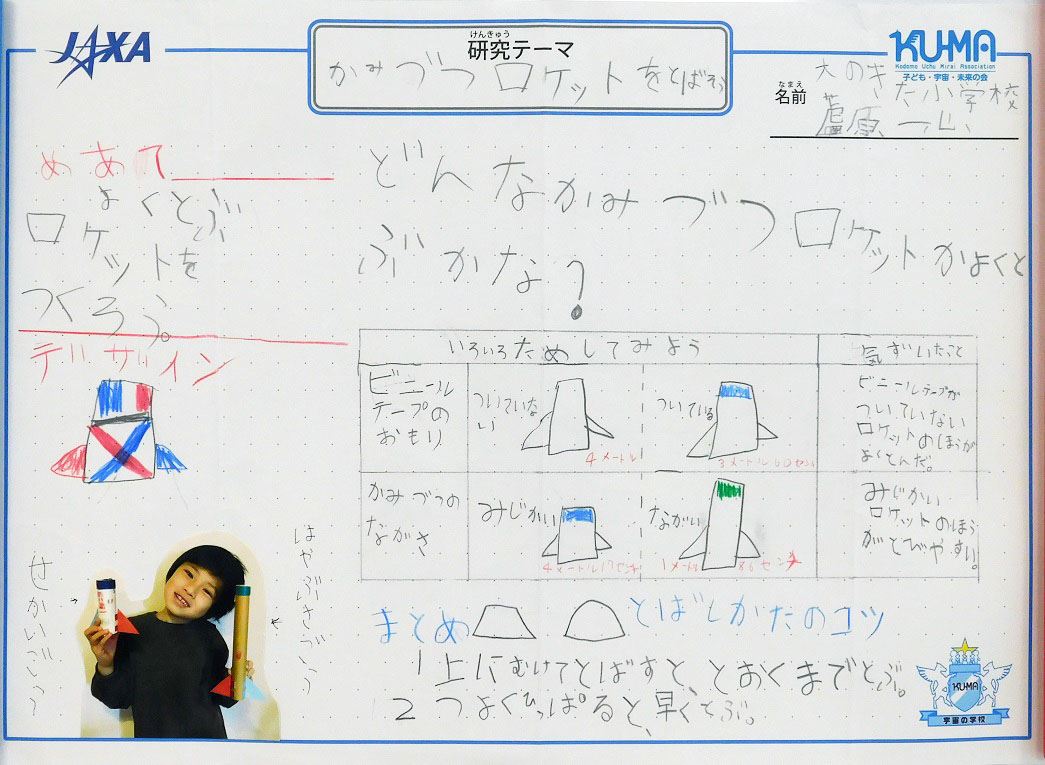 JAXA
けんきゅう
研究テーマ
かみづつロケットをとばそう
KU-MA
Kodomo Uchu Mirai Association
子ども・宇宙・未来の会
なまえ
名前
大のきた小学校
蘆原一心
めあて
よくとぶ
ロケットを
つくろう。
どんなかみづつロケットがよくと
ぶかな?
デザイン
いろいろためしてみよう
気ずいたこと
ビニール
テープの
おもり
ついていな
い
4メートル
ついている
3メートル60センチ
ビニールテープが
ついていない
ロケットのほうが
よくとんだ。
かみづつの
ながさ
みじかい
4メートル17センチ
ながい
1メートル86センチ
みじかい
ロケットのほう
がとびやすい。
せかいごう
はやぶさごう
まとめ
とばしかたのコツ
1上にむけてとばすと、とおくまでとぶ。
2つよくひっぱると、早くとぶ。
KU-MA
宇宙の学校